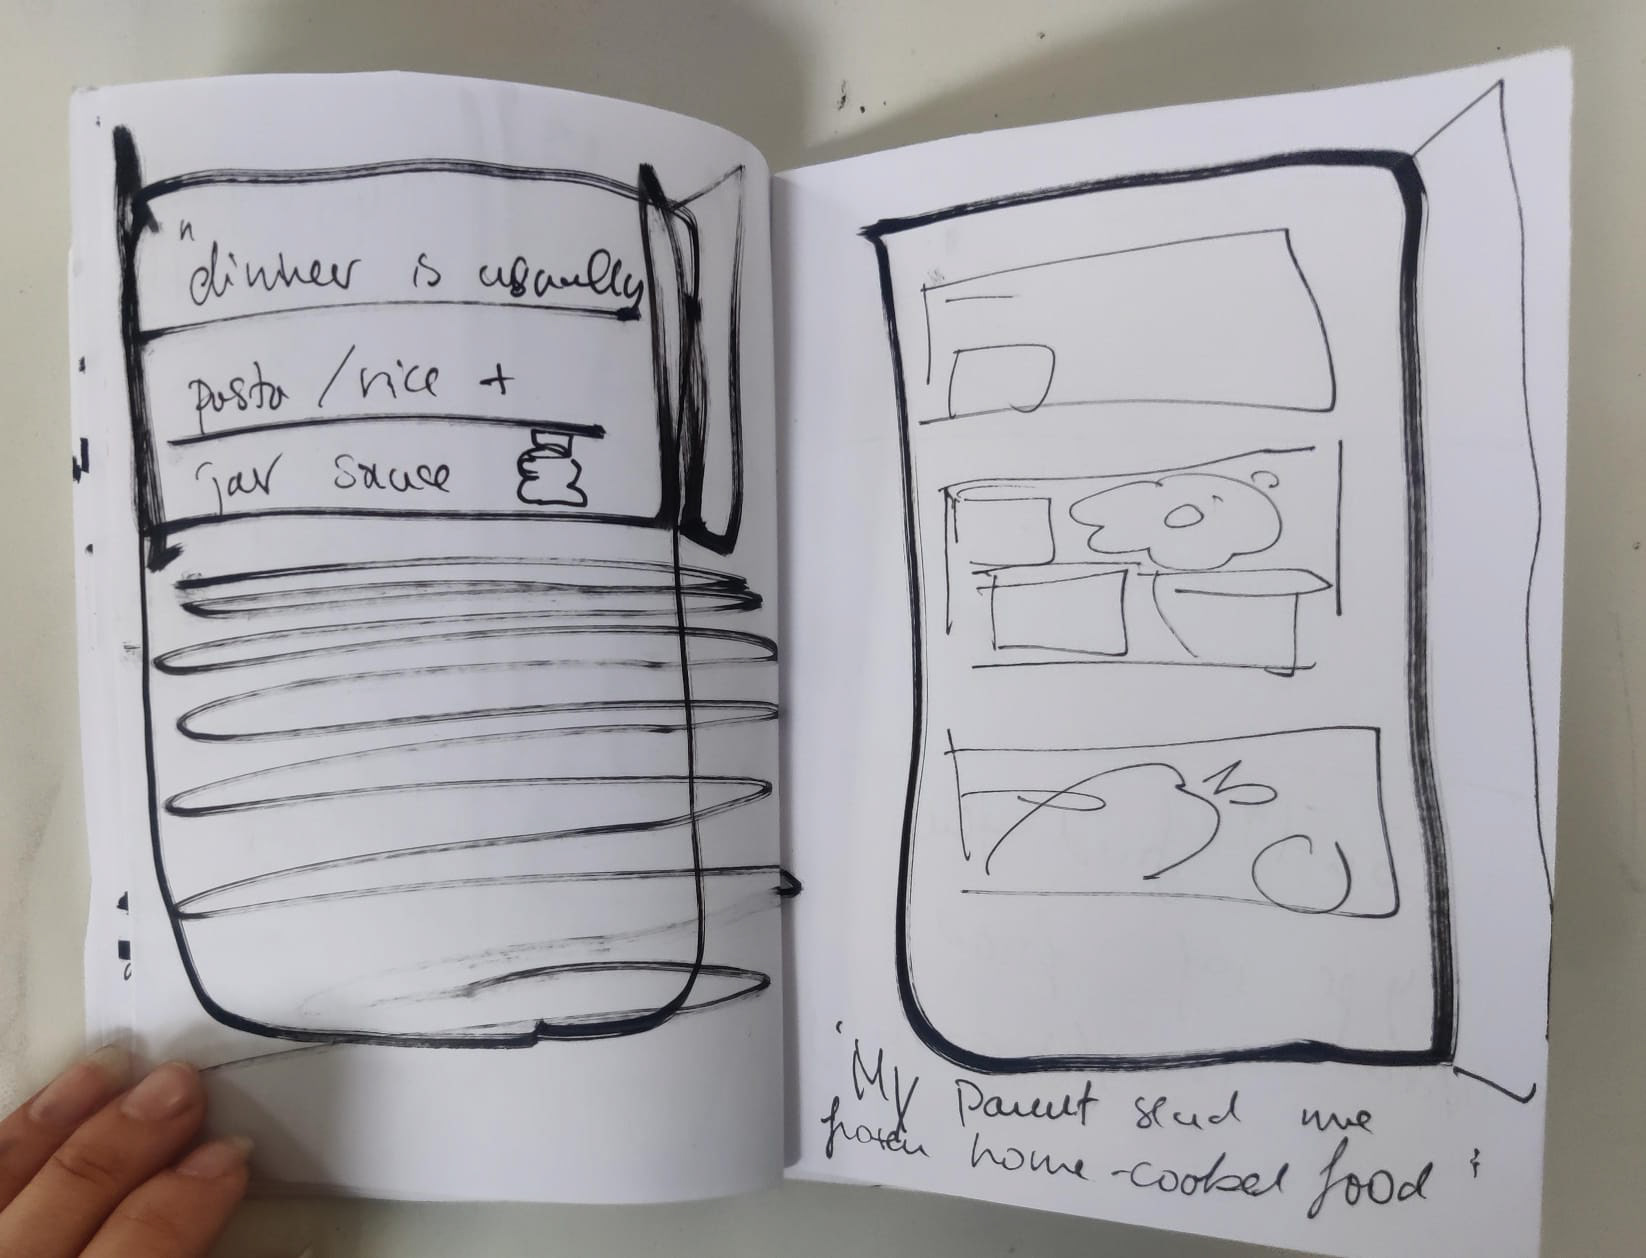 "dinner is usually
pasta / rice +
jar sauce
'My Parent send me
frozen home-cooked food'